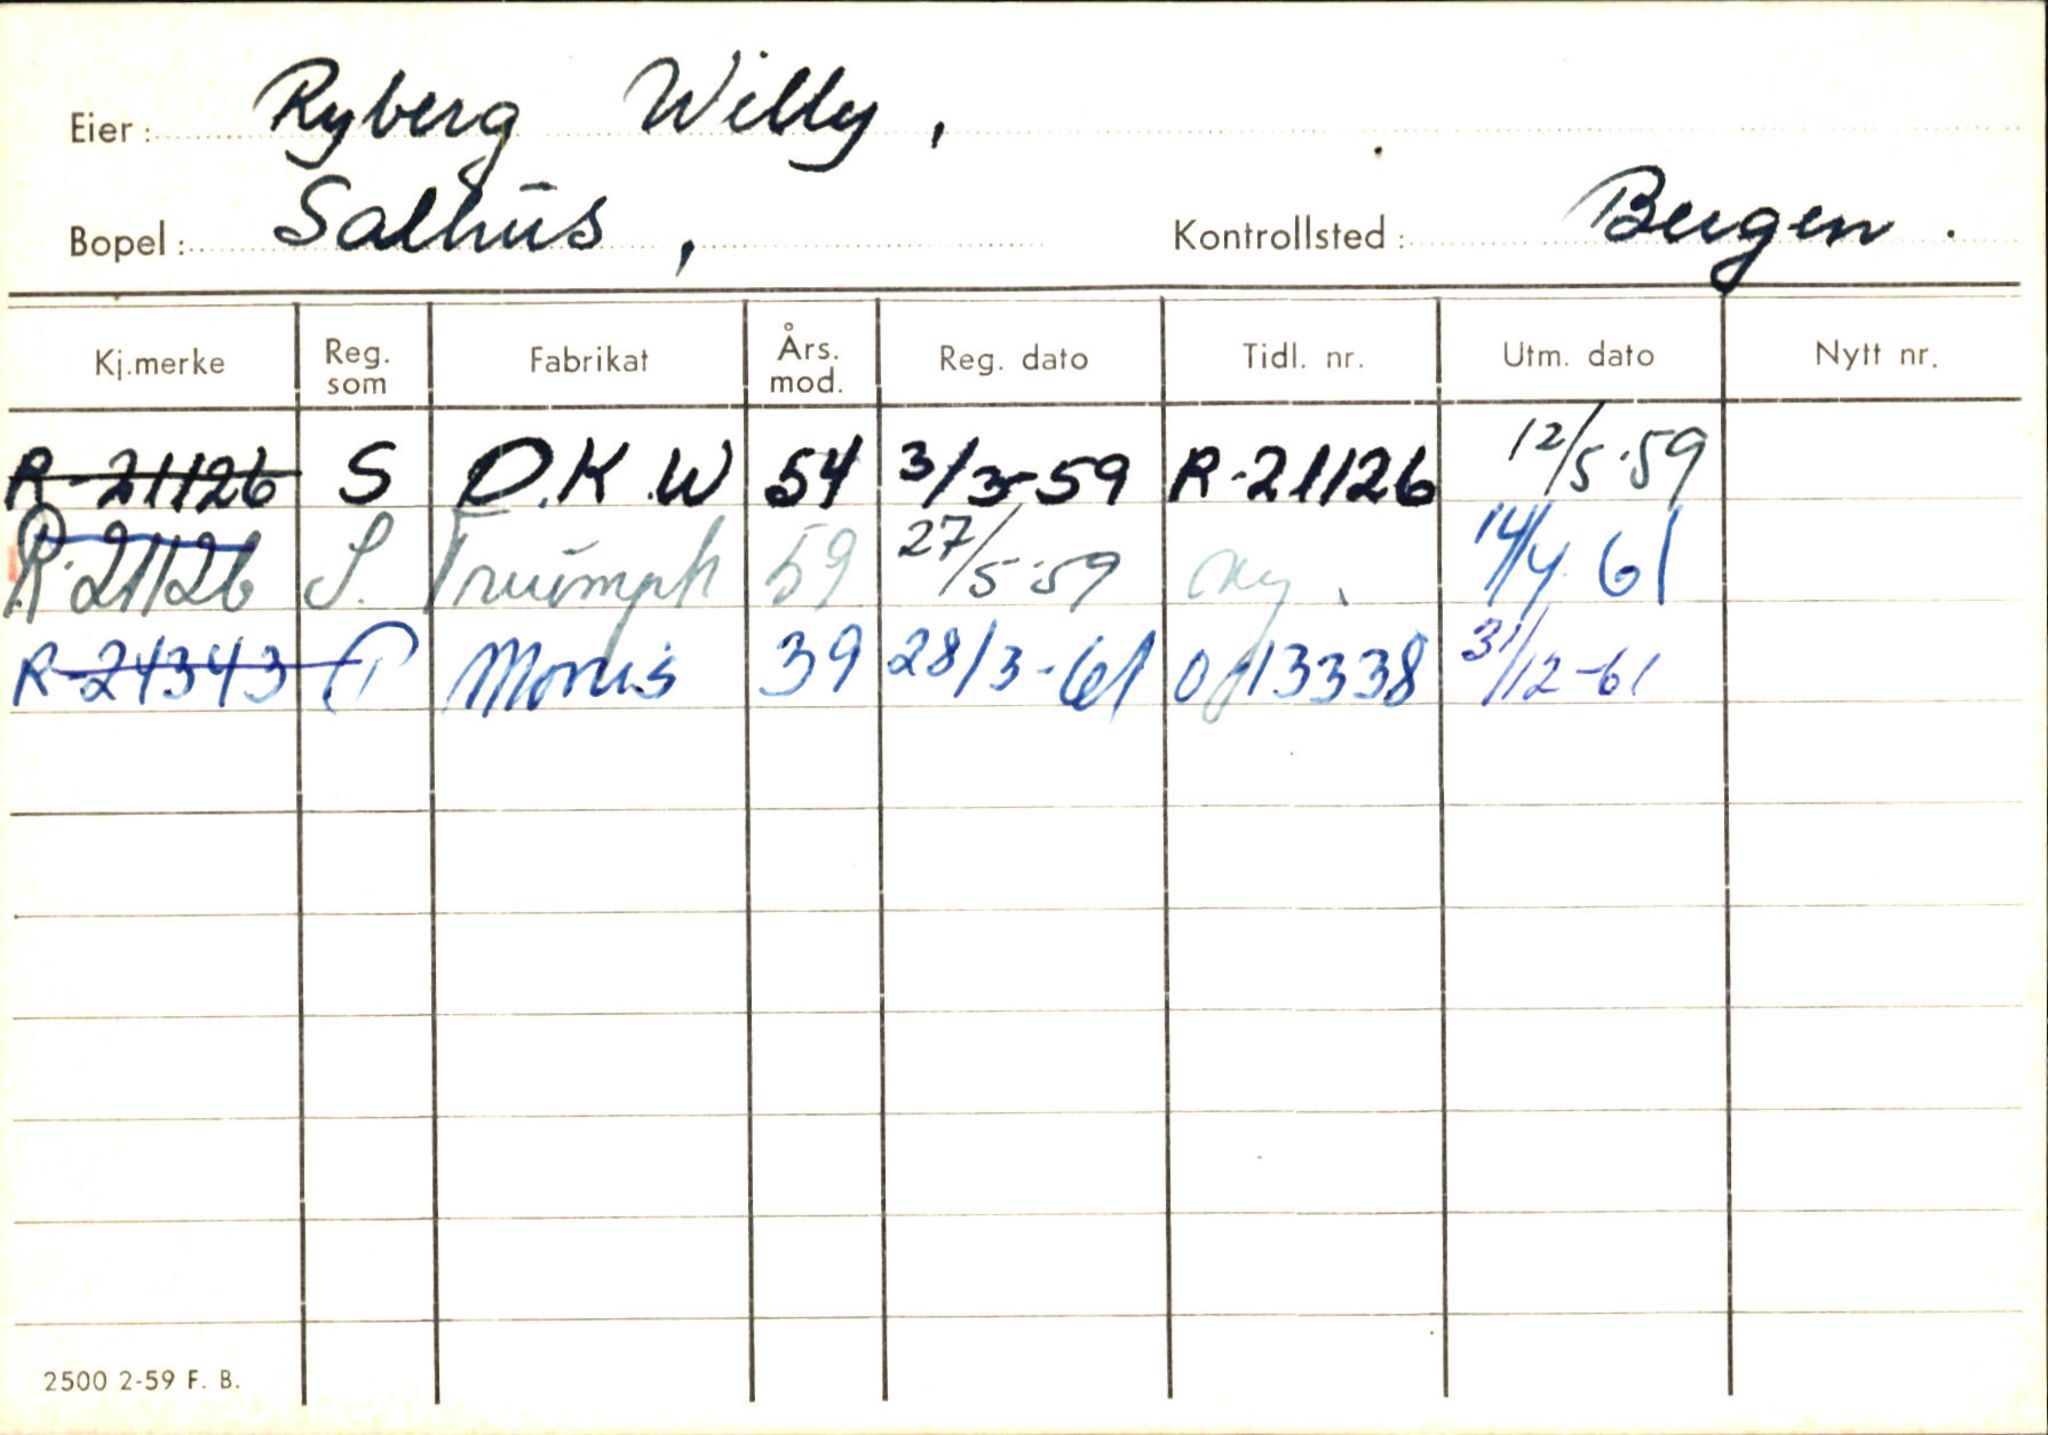 Eier: Ryberg Willy,
Bopel: Salhus, Kontrollsted: Bergen.
Kj.merke Reg. som Fabrikat Års. mod. Reg. dato Tidl. nr. Utm. dato Nytt nr.
R-21126 S D.K.W 54 3/3-59 R-21126 12/5-59
R-21126 S. Triumph 59 27/5-59 ny. 14/4 61
R-24343 P Morris 39 28/3-61 O-13338 31/12-61
2500 2-59 F. B.